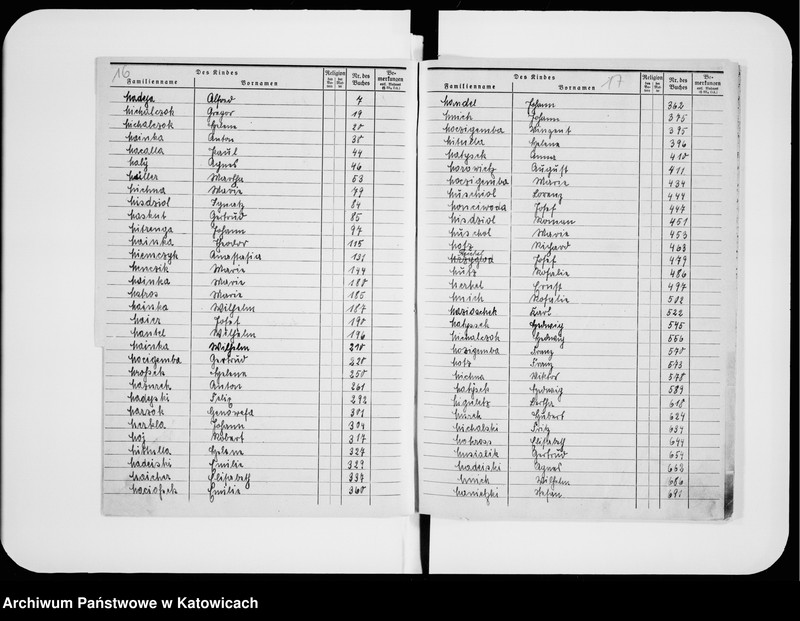 16
Des Kindes Religion Nr. des Buches Bemerkungen
Familienname Vornamen
Madeja Alfred 7
Michalczok Gregor 19
Michalczok Helene 20
Mainka Anton 30
Macalla Paul 44
Maly Agnes 46
Müller Martha 53
Michna Marie 79
Misdziol Ignatz 84
Maskut Gertrud 85
Mitrenga Johann 97
Mainka Theodor 115
Niemczyk Anastasia 131
Mencsik Marie 144
Mainka Marie 180
Matros Marie 185
Mainka Wilhelm 187
Maier Josef 190
Mantel Wilhelm 196
Mainka Wilhelm 210
Macigemba Gertrud 220
Mrosek Helene 250
Mazurek Anton 261
Madeyski Felix 292
Marzok Genovefa 301
Merkla Johann 304
Moj Robert 317
Mikulla Helene 327
Madeiski Emilie 329
Maicher Elisabeth 337
Maciossek Emilie 360
17
Des Kindes Religion Nr. des Buches Bemerkungen
Familienname Vornamen
Mandel Johann 362
Mnich Johann 375
Moczigemba Vinzent 395
Mikulla Helene 396
Matysek Anna 410
Morowietz August 411
Moczigemba Marie 434
Muschiol Lorenz 444
Monciwoda Josef 447
Misdziol Roman 451
Muschol Marie 453
Motz Richard 463
Josef 479
Mutz Rosalie 486
Merkel Ernst 497
Mnich Rosalie 502
Maziossek Karl 522
Matyssek Hedwig 545
Michalczok Hedwig 556
Mozigemba Franz 570
Motz Franz 573
Michna Viktor 578
Matysek Hedwig 589
Miguletz Berta 618
Murek Hubert 624
Michalski Fritz 637
Motross Elisabeth 644
Musialik Gertrud 654
Madeiski Agnes 663
Mnich Wilhelm 686
Manietzki Stefan 691
Archiwum Państwowe w Katowicach